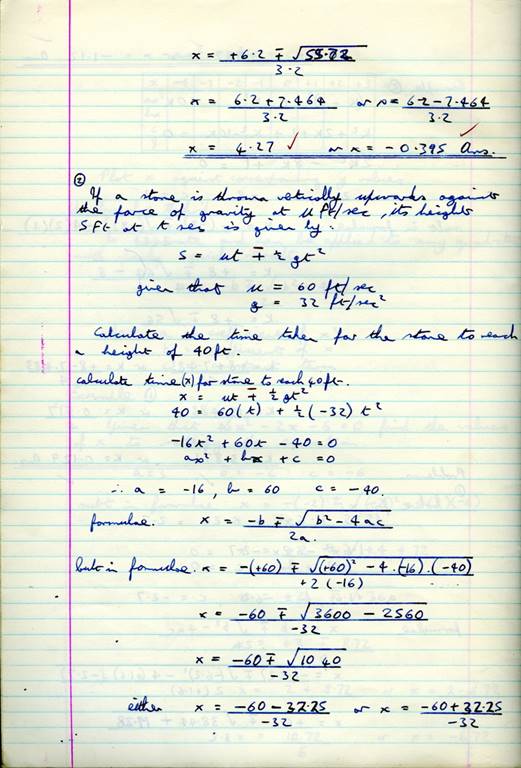 x = +6·2 ∓ √55·72 / 3·2
x = 6·2 + 7·464 / 3·2 or x = 6·2 - 7·464 / 3·2
x = 4·27 ✓ or x = - 0·395 Ans. ✓
② If a stone is thrown vertically upwards against
the force of gravity at u ft/sec, its height
S Ft at t secs is given by:
s = ut ∓ ½ gt²
given that u = 60 ft/sec
g = 32 ft/sec²
Calculate the time taken for the stone to each
a height of 40 ft.
calculate time (x) for stone to each 40 ft.
x = ut ∓ ½ gt²
40 = 60(t) + ½(-32) t²
-16t² + 60t - 40 = 0
ax² + bx + c = 0
∴ a = -16, b = 60 c = -40.
formulae. x = -b ∓ √b² - 4ac / 2a.
but in formulae. x = -(+60) ∓ √(+60)² - 4·(-16)·(-40) / +2(-16)
x = -60 ∓ √3600 - 2560 / -32
x = -60 ∓ √1040 / -32
either x = -60 - 32·25 / -32 or x = -60 + 32·25 / -32